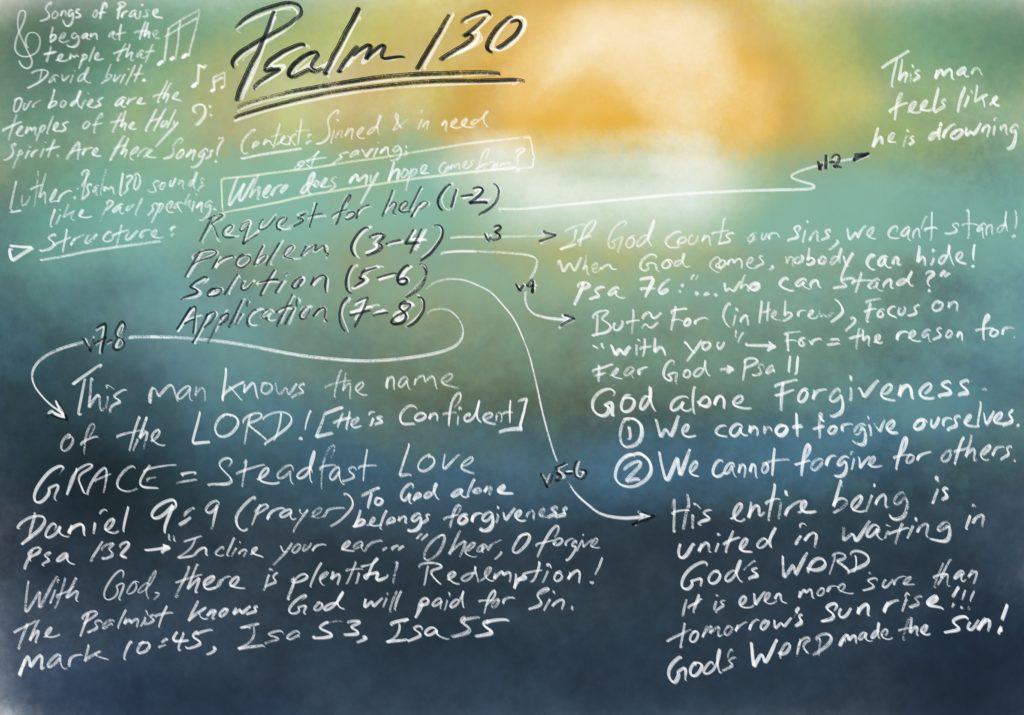 Songs of Praise
began at the
temple that
David built.
Our bodies are the
temples of the Holy
Spirit. Are there Songs?
Luther: Psalm 130 sounds
like Paul speaking.
Psalm 130
Context: Sinned & in need
of saving:
Where does my hope comes from?
Structure:
Request for help (1-2)
Problem (3-4)
Solution (5-6)
Application (7-8)
v1-2
This man
feels like
he is drowning
v3
If God counts our sins, we can't stand!
When God comes, nobody can hide!
Psa 76: "...who can stand?"
v4
But ≈ For (in Hebrew), Focus on
"with you" → For = the reason for.
Fear God → Psa 11
God alone Forgiveness.
① We cannot forgive ourselves.
② We cannot forgive for others.
v5-6
His entire being is
united in waiting in
God's WORD
It is even more sure than
tomorrow's sun rise!!!
God's WORD made the Sun!
v7-8
This man knows the name
of the LORD! [He is Confident]
GRACE = Steadfast Love
Daniel 9:9 (prayer) To God alone
belongs forgiveness
Psa 132 → "Incline your ear... "O hear, O forgive
With God, there is plentiful Redemption!
The Psalmist knows God will paid for Sin.
Mark 10:45, Isa 53, Isa 55